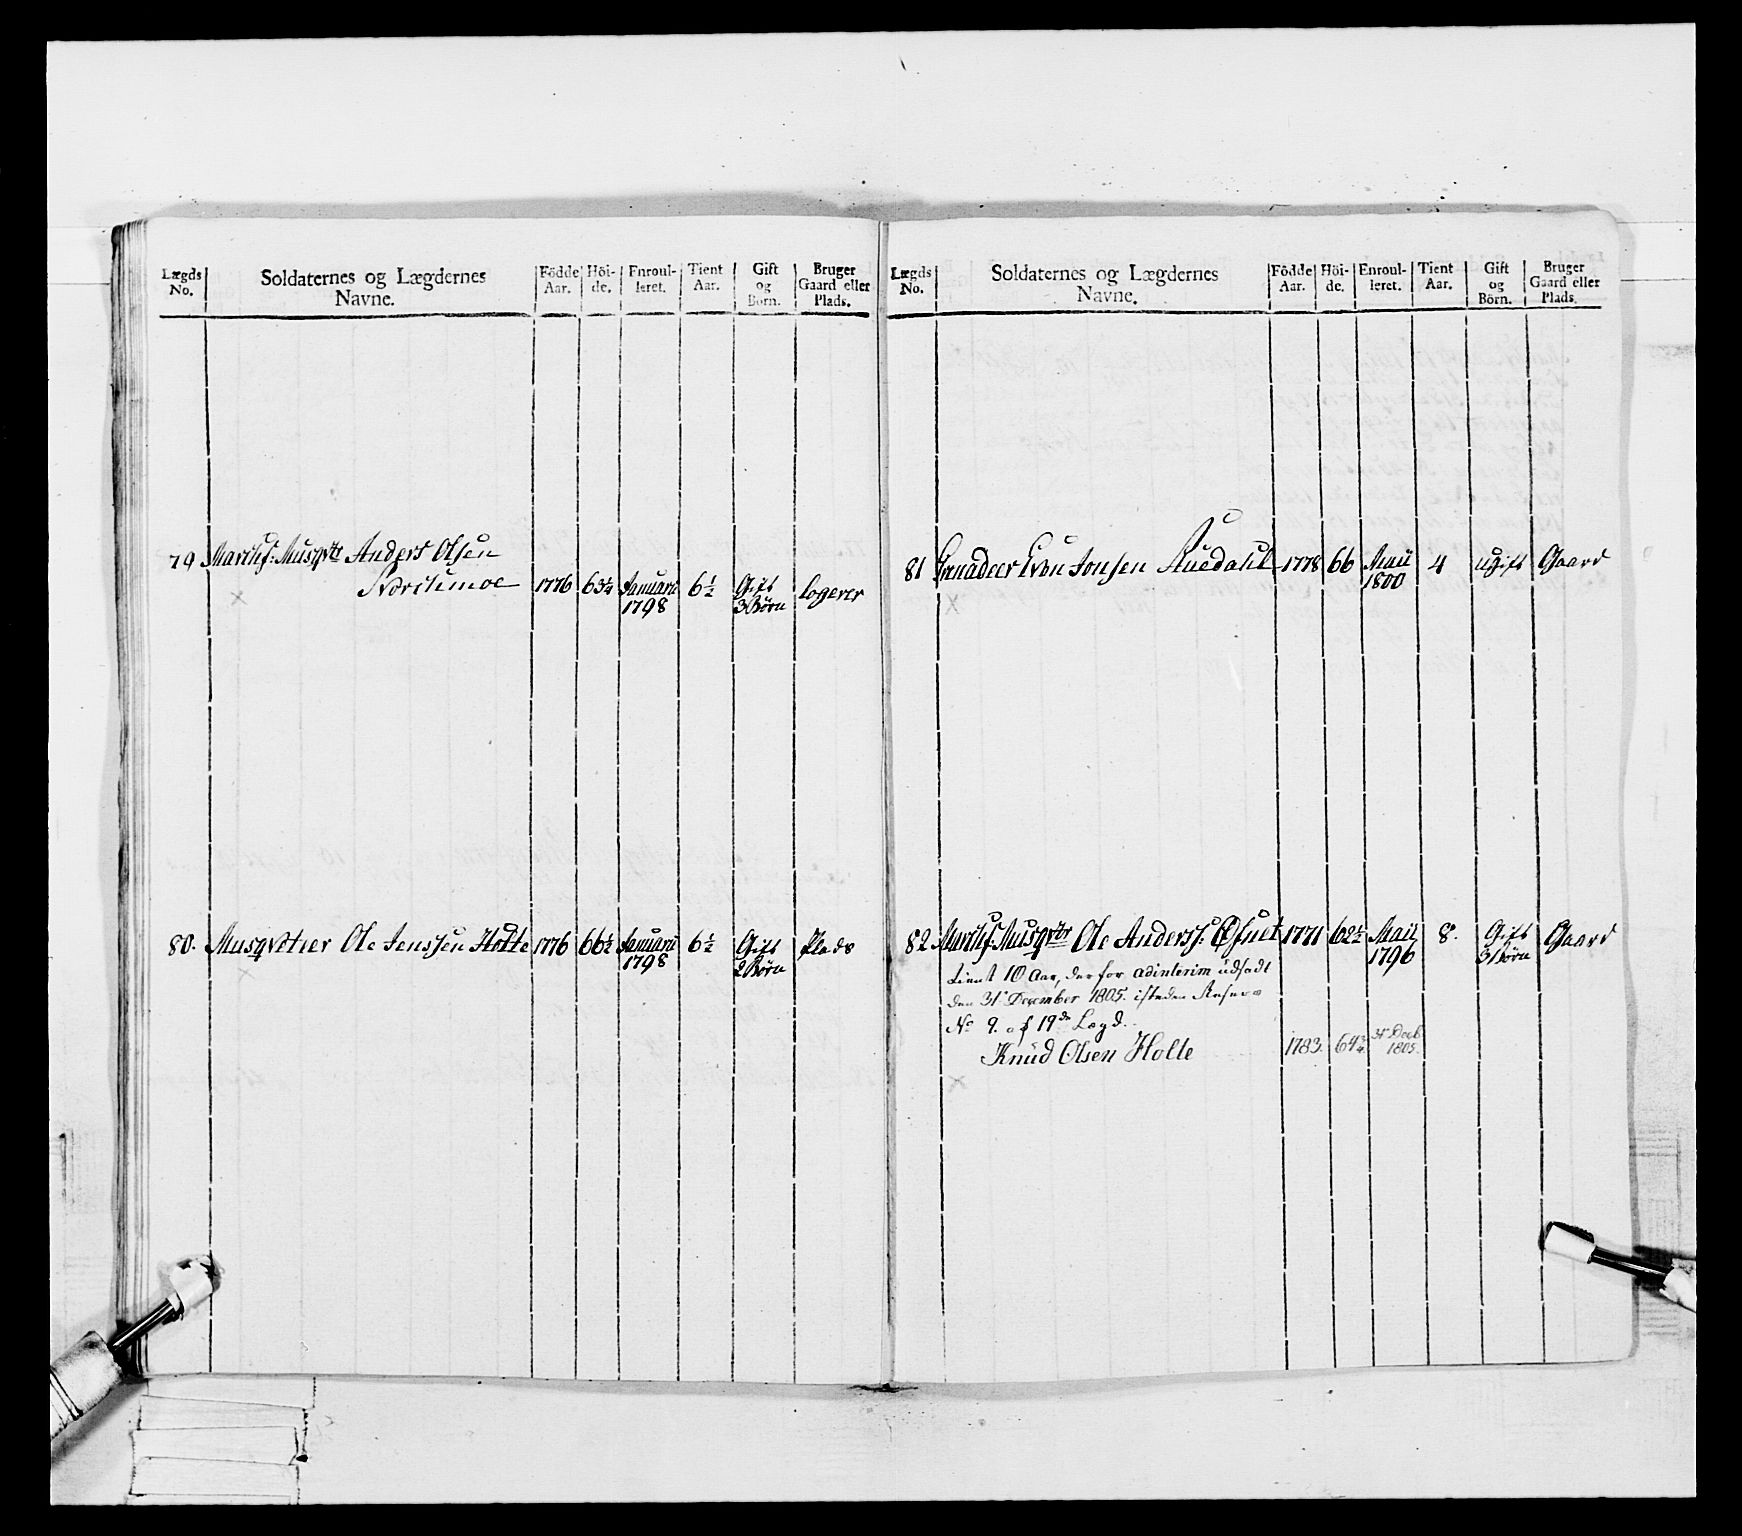 Lægds No.
Soldaternes og Lægdernes Navne.
Födde Aar.
Höi-de.
Enroul-leret.
Tient Aar.
Gift og Börn.
Bruger Gaard eller Plads.
79 Musqvtr Anders Olsen
1776 63¼ Januarii 1798 6½ Gift 3 Börn logerer
80. Musqveteer Ole Jenssen Holte 1776 66½ Januarii 1798 6½ Gift 2 Börn Plads
Lægds No.
Soldaternes og Lægdernes Navne.
Födde Aar.
Höi-de.
Enroul-leret.
Tient Aar.
Gift og Börn.
Bruger Gaard eller Plads.
81 Grenadeer Even Jonsen 1778 66 Maii 1800 4 ugift Gaard
82 Musqvtr Ole Anderss: 1771 62½ Maii 1796 8. Gift 3 Börn Gaard
tient 10 Aar, derfor adinterim udsadt
den 31te December 1805. isteden Reserv
No 9. af 19de Lægd.
Knud Olsen Holte 1783. 64¾ 31 Decb 1805.